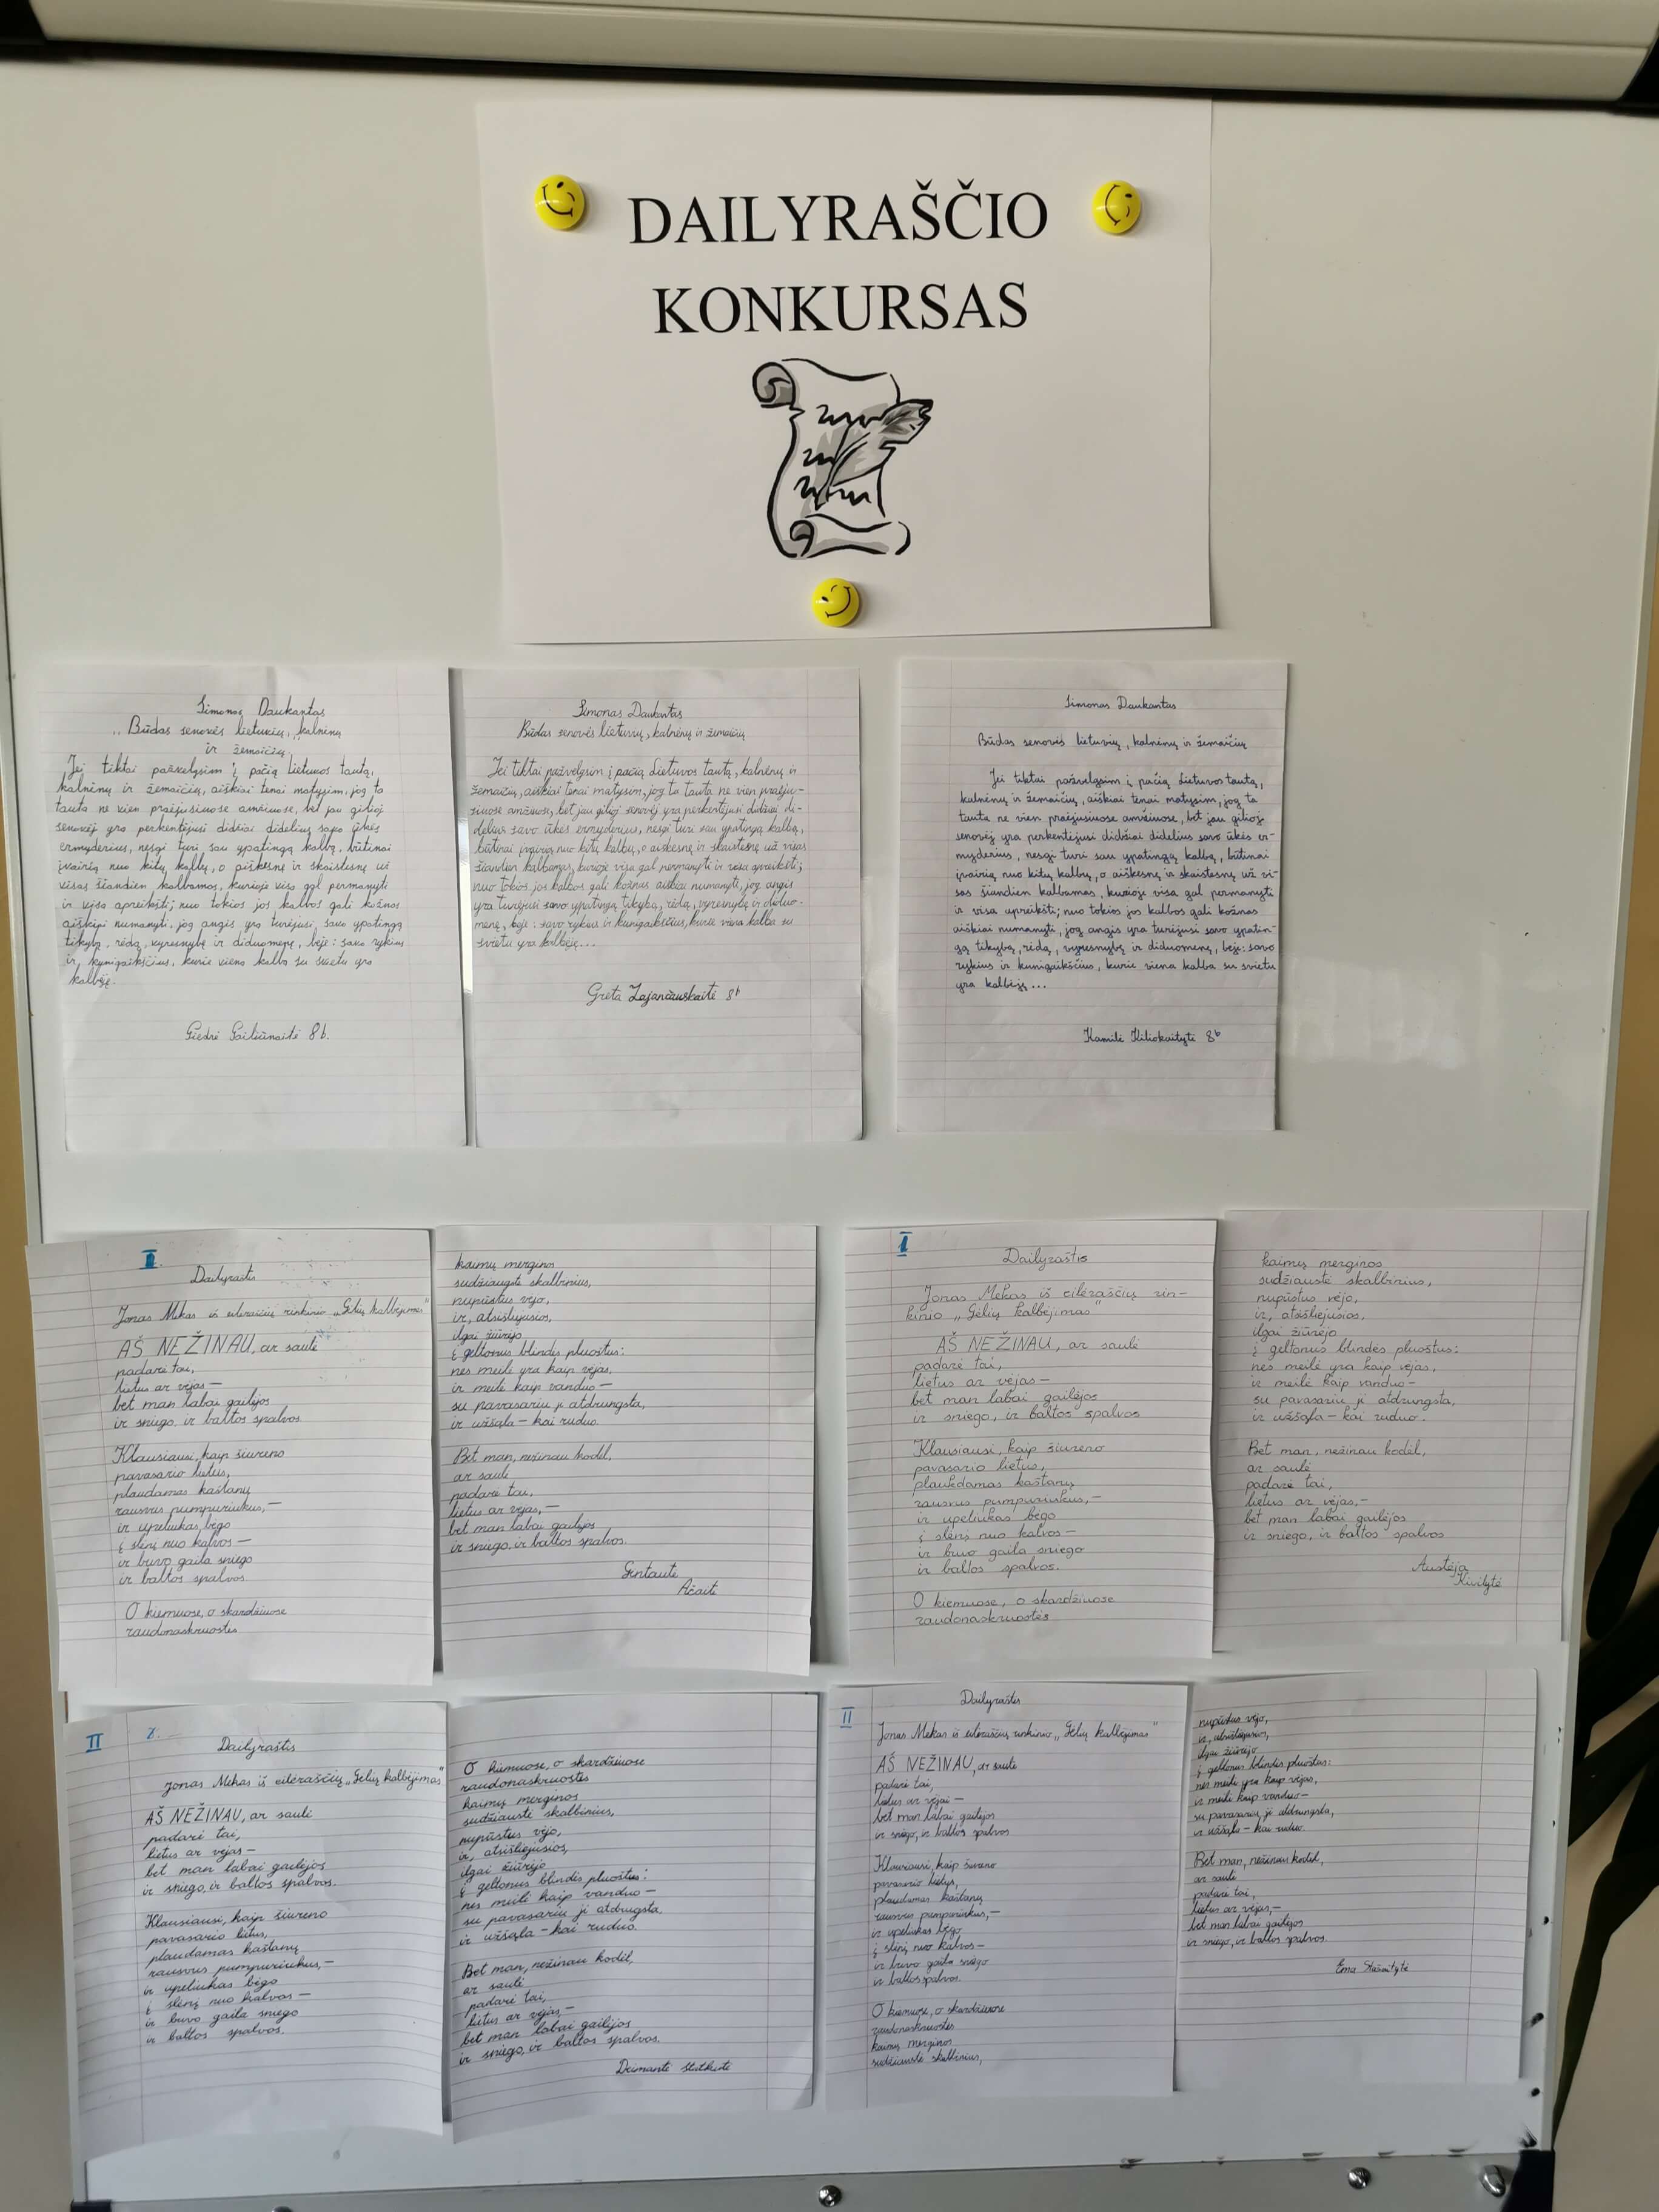 DAILYRAŠČIO
KONKURSAS
Simonas Daukantas
„Būdas senovės lietuvių, kalnėnų
ir žemaičių
Jei tiktai pažvelgsim į pačią Lietuvos tautą,
kalnėnų ir žemaičių, aiškiai tenai matysim, jog ta
tauta ne vien praėjusiuose amžiuose, bet jau gilioj
senovėj yra perkentėjusi didžiai didelius savo ūkės
ermyderius, nesgi turi sau ypatingą kalbą, būtinai
įvairią nuo kitų kalbų, o aiškesnę ir skaistesnę už
visas šiandien kalbamas, kurioje visa gal permanyti
ir visa apreikšti; nuo tokios jos kalbos gali kožnas
aiškiai numanyti, jog angis yra turėjusi savo ypatingą
tikybą, rėdą, vyresnybę ir diduomenę, beje: savo rykius
ir kunigaikščius, kurie viena kalba su svietu yra
kalbėję.
Giedrė Gailiūnaitė 8b.
Simonas Daukantas
Būdas senovės lietuvių, kalnėnų ir žemaičių
Jei tiktai pažvelgsim į pačią Lietuvos tautą, kalnėnų ir
žemaičių, aiškiai tenai matysim, jog ta tauta ne vien praėju-
siuose amžiuose, bet jau gilioj senovėj yra perkentėjusi didžiai di-
delius savo ūkės ermyderius, nesgi turi sau ypatingą kalbą,
būtinai įvairią nuo kitų kalbų, o aiškesnę ir skaistesnę už visas
šiandien kalbamas, kurioje visa gal permanyti ir visa apreikšti;
nuo tokios jos kalbos gali kožnas aiškiai numanyti, jog angis
yra turėjusi savo ypatingą tikybą, rėdą, vyresnybę ir diduo-
menę, beje: savo rykius ir kunigaikščius, kurie viena kalba su
svietu yra kalbėję...
Greta Zajančauskaitė 8b
Simonas Daukantas
Būdas senovės lietuvių, kalnėnų ir žemaičių
Jei tiktai pažvelgsim į pačią Lietuvos tautą,
kalnėnų ir žemaičių, aiškiai tenai matysim, jog ta
tauta ne vien praėjusiuose amžiuose, bet jau gilioj
senovėj yra perkentėjusi didžiai didelius savo ūkės er-
myderius, nesgi turi sau ypatingą kalbą, būtinai
įvairią nuo kitų kalbų, o aiškesnę ir skaistesnę už vi-
sas šiandien kalbamas, kurioje visa gal permanyti
ir visa apreikšti; nuo tokios jos kalbos gali kožnas
aiškiai numanyti, jog angis yra turėjusi savo ypatin-
gą tikybą, rėdą, vyresnybę ir diduomenę, beje: savo
rykius ir kunigaikščius, kurie viena kalba su svietu
yra kalbėję...
Kamilė Kiliokaitytė 8b
Dailyraštis
Jonas Mekas iš eilėraščių rinkinio „Gėlių kalbėjimas"
AŠ NEŽINAU, ar saulė
padarė tai,
lietus ar vėjas—
bet man labai gailėjos
ir sniego, ir baltos spalvos.
Klausiausi, kaip šiureno
pavasario lietus,
plaudamas kaštanų
rausvus pumpuriukus,—
ir upeliukas bėgo
į slėnį nuo kalvos—
ir buvo gaila sniego
ir baltos spalvos.
O kiemuose, o skardžiuose
raudonaskruostės
kaimų merginos
sudžiaugstė skalbinius,
nupūstus vėjo,
ir, atsišliejusios,
ilgai žiūrėjo
į geltonus blindės pluoštus:
nes meilė yra kaip vėjas,
ir meilė kaip vanduo—
su pavasariu ji atdrungsta,
ir užšąla—kai ruduo.
Bet man, nežinau kodėl,
ar saulė
padarė tai,
lietus ar vėjas,—
bet man labai gailėjos
ir sniego, ir baltos spalvos.
Gintautė
Ačaitė
I
Dailyraštis
Jonas Mekas iš eilėraščių rin-
kinio „Gėlių kalbėjimas"
AŠ NEŽINAU, ar saulė
padarė tai,
lietus ar vėjas—
bet man labai gailėjos
ir sniego, ir baltos spalvos
Klausiausi, kaip šiureno
pavasario lietus,
plaukdamas kaštanų
rausvus pumpuriukus,—
ir upeliukas bėgo
į slėnį nuo kalvos—
ir buvo gaila sniego
ir baltos spalvos.
O kiemuose, o skardžiuose
raudonaskruostės
kaimų merginos
sudžiaustė skalbinius,
nupūstus vėjo,
ir, atsišliejusios,
ilgai žiūrėjo
į geltonus blindės pluoštus:
nes meilė yra kaip vėjas,
ir meilė kaip vanduo—
su pavasariu ji atdrungsta,
ir užšąla—kai ruduo.
Bet man, nežinau kodėl,
ar saulė
padarė tai,
lietus ar vėjas,—
bet man labai gailėjos
ir sniego, ir baltos spalvos
Austėja
Kivilytė
II
Dailyraštis
Jonas Mekas iš eilėraščių „Gėlių kalbėjimas"
AŠ NEŽINAU, ar saulė
padarė tai,
lietus ar vėjas—
bet man labai gailėjos
ir sniego, ir baltos spalvos.
Klausiausi, kaip šiureno
pavasario lietus,
plaudamas kaštanų
rausvus pumpuriukus,—
ir upeliukas bėgo
į slėnį nuo kalvos—
ir buvo gaila sniego
ir baltos spalvos.
O kiemuose, o skardžiuose
raudonaskruostės
kaimų merginos
sudžiaustė skalbinius,
nupūstus vėjo,
ir, atsišliejusios,
ilgai žiūrėjo
į geltonus blindės pluoštus:
nes meilė kaip vanduo—
su pavasariu ji atdrugsta
ir užšąla—kai ruduo.
Bet man, nežinau kodėl,
ar saulė
padarė tai,
lietus ar vėjas,—
bet man labai gailėjos
ir sniego, ir baltos spalvos.
Deimantė Statkutė
II
Dailyraštis
Jonas Mekas iš eilėraščių rinkinio „Gėlių kalbėjimas"
AŠ NEŽINAU, ar saulė
padarė tai,
lietus ar vėjai—
bet man labai gailėjos
ir sniego, ir baltos spalvos
Klausiausi, kaip šiureno
pavasario lietus,
plaudamas kaštanų
rausvus pumpuriukus,—
ir upeliukas bėgo
į slėnį nuo kalvos—
ir buvo gaila sniego
ir baltos spalvos.
O kiemuose, o skardžiuose
raudonaskruostės
kaimų merginos
sudžiaustė skalbinius,
nupūstus vėjo,
ir, atsišliejusios,
ilgai žiūrėjo
į geltonus blindės pluoštus:
nes meilė yra kaip vėjas,
ir meilė kaip vanduo—
su pavasariu ji atdrungsta,
ir užšąla—kai ruduo.
Bet man, nežinau kodėl,
ar saulė
padarė tai,
lietus ar vėjas,—
bet man labai gailėjos
ir sniego, ir baltos spalvos.
Ema